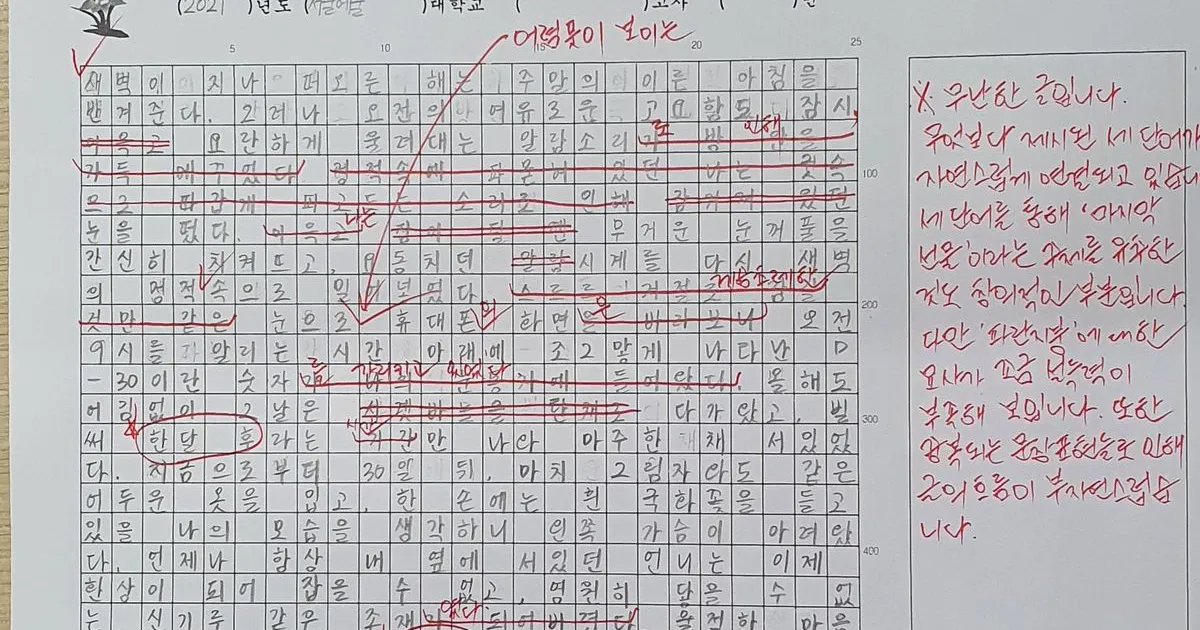 (2021)년도 (서울예술)대학교 ( )고사 ( )번
5 10 15 20 25
어렴풋이 보이는
새벽이 지나 떠오르는 해는 주말의 이른 아침을
반겨준다. 그러나 오전의 여유로운 고요함도 잠시,
이윽고 요란하게 울려대는 알람소리가 방 안을
로 인해
가득 메꾸었다. 정적속에 파묻혀 있던 나는 귓속
100
으로 따갑게 파고드는 소리로 인해 잠겨져 있던
눈을 떴다. 이윽고 무거운 눈꺼풀을
나는
간신히 치켜뜨고, 요동치던 알람시계를 다시 새벽
의 정적속으로 밀어넣었다. 스르르
게슴츠레한
것만 같은 눈으로 휴대폰의 화면을 바라보니 오전
200
9시를 알리는 시간 아래에 조그맣게 나타난 D
-30이란 숫자 들어왔다. 올해도
를 가리키고 있었다
어김없이 그날은 다가왔고, 벌
300
써 한달 후라는 시간만 나와 마주한 채 서 있었
다. 지금으로부터 30일 뒤, 마치 그림자와도 같은
어두운 옷을 입고, 한 손에는 흰 국화꽃을 들고
있을 나의 모습을 생각하니 왼쪽 가슴이 아려왔
다. 언제나 항상 내 옆에 서있던 언니는 이제
400
환상이 되어 잡을 수 없고, 영원히 닿을 수 없
는 신기루 같은 존재 되어버렸다. 울적한 마음
였다
※ 무난한 글입니다.
무엇보다 제시된 세 단어가
자연스럽게 연결되고 있습니다
세 단어를 통해 '마지막
선물'이라는 주제를 유추한
것도 창의적인 부분입니다.
다만 '파란지붕'에 대한
묘사가 조금 설득력이
부족해 보입니다. 또한
중복되는 문장표현들로 인해
글의 흐름이 부자연스럽습
니다.